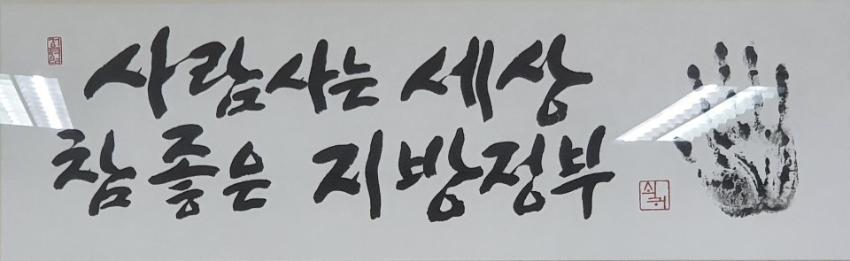 사람사는 세상
참 좋은 지방정부